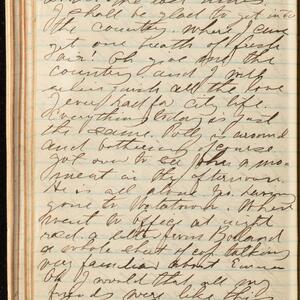 I shall be glad to get into
the country. Where I can
get one breath of fresh
air! Oh give me the
country and I will
relinquish all the love
I ever had for city life.
Everything today is just
the same. Polly is around
and bothering of course.
got over to see him a mo-
ment in the afternoon.
He is all alone having
gone to When
went to office at night
read a letter from
a whole sheet
very familiar about Emma
Oh I would that all my
friends were like